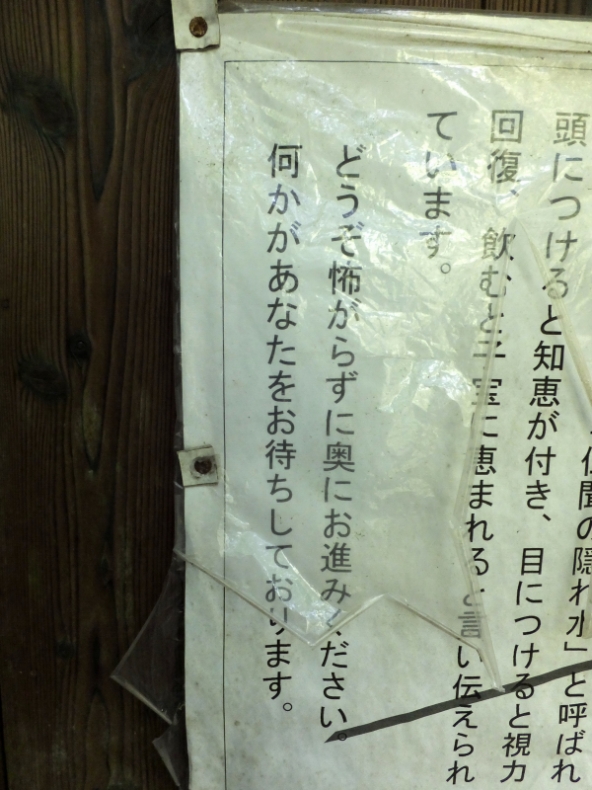 聞の隠れ水」と呼ばれ
頭につけると知恵が付き、目につけると視力
回復、飲むと子宝に恵まれると言い伝えられ
ています。
どうぞ怖がらずに奥にお進みください。
何かがあなたをお待ちしております。